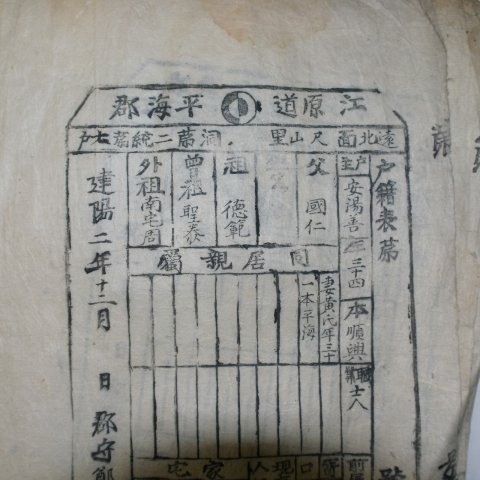 江原道 平海郡
遠北面 尺山里 洞第二統第七戶
戶籍表第
戶主 安陽善 年三十四 本順興 職業 士人
父 國仁
祖 德範
曾祖 聖泰
外祖 南宅周
同居親屬
妻黃氏年三十
一本平海
前居
口
現
人
家宅
建陽二年十二月 日 郡守鄭
號
第